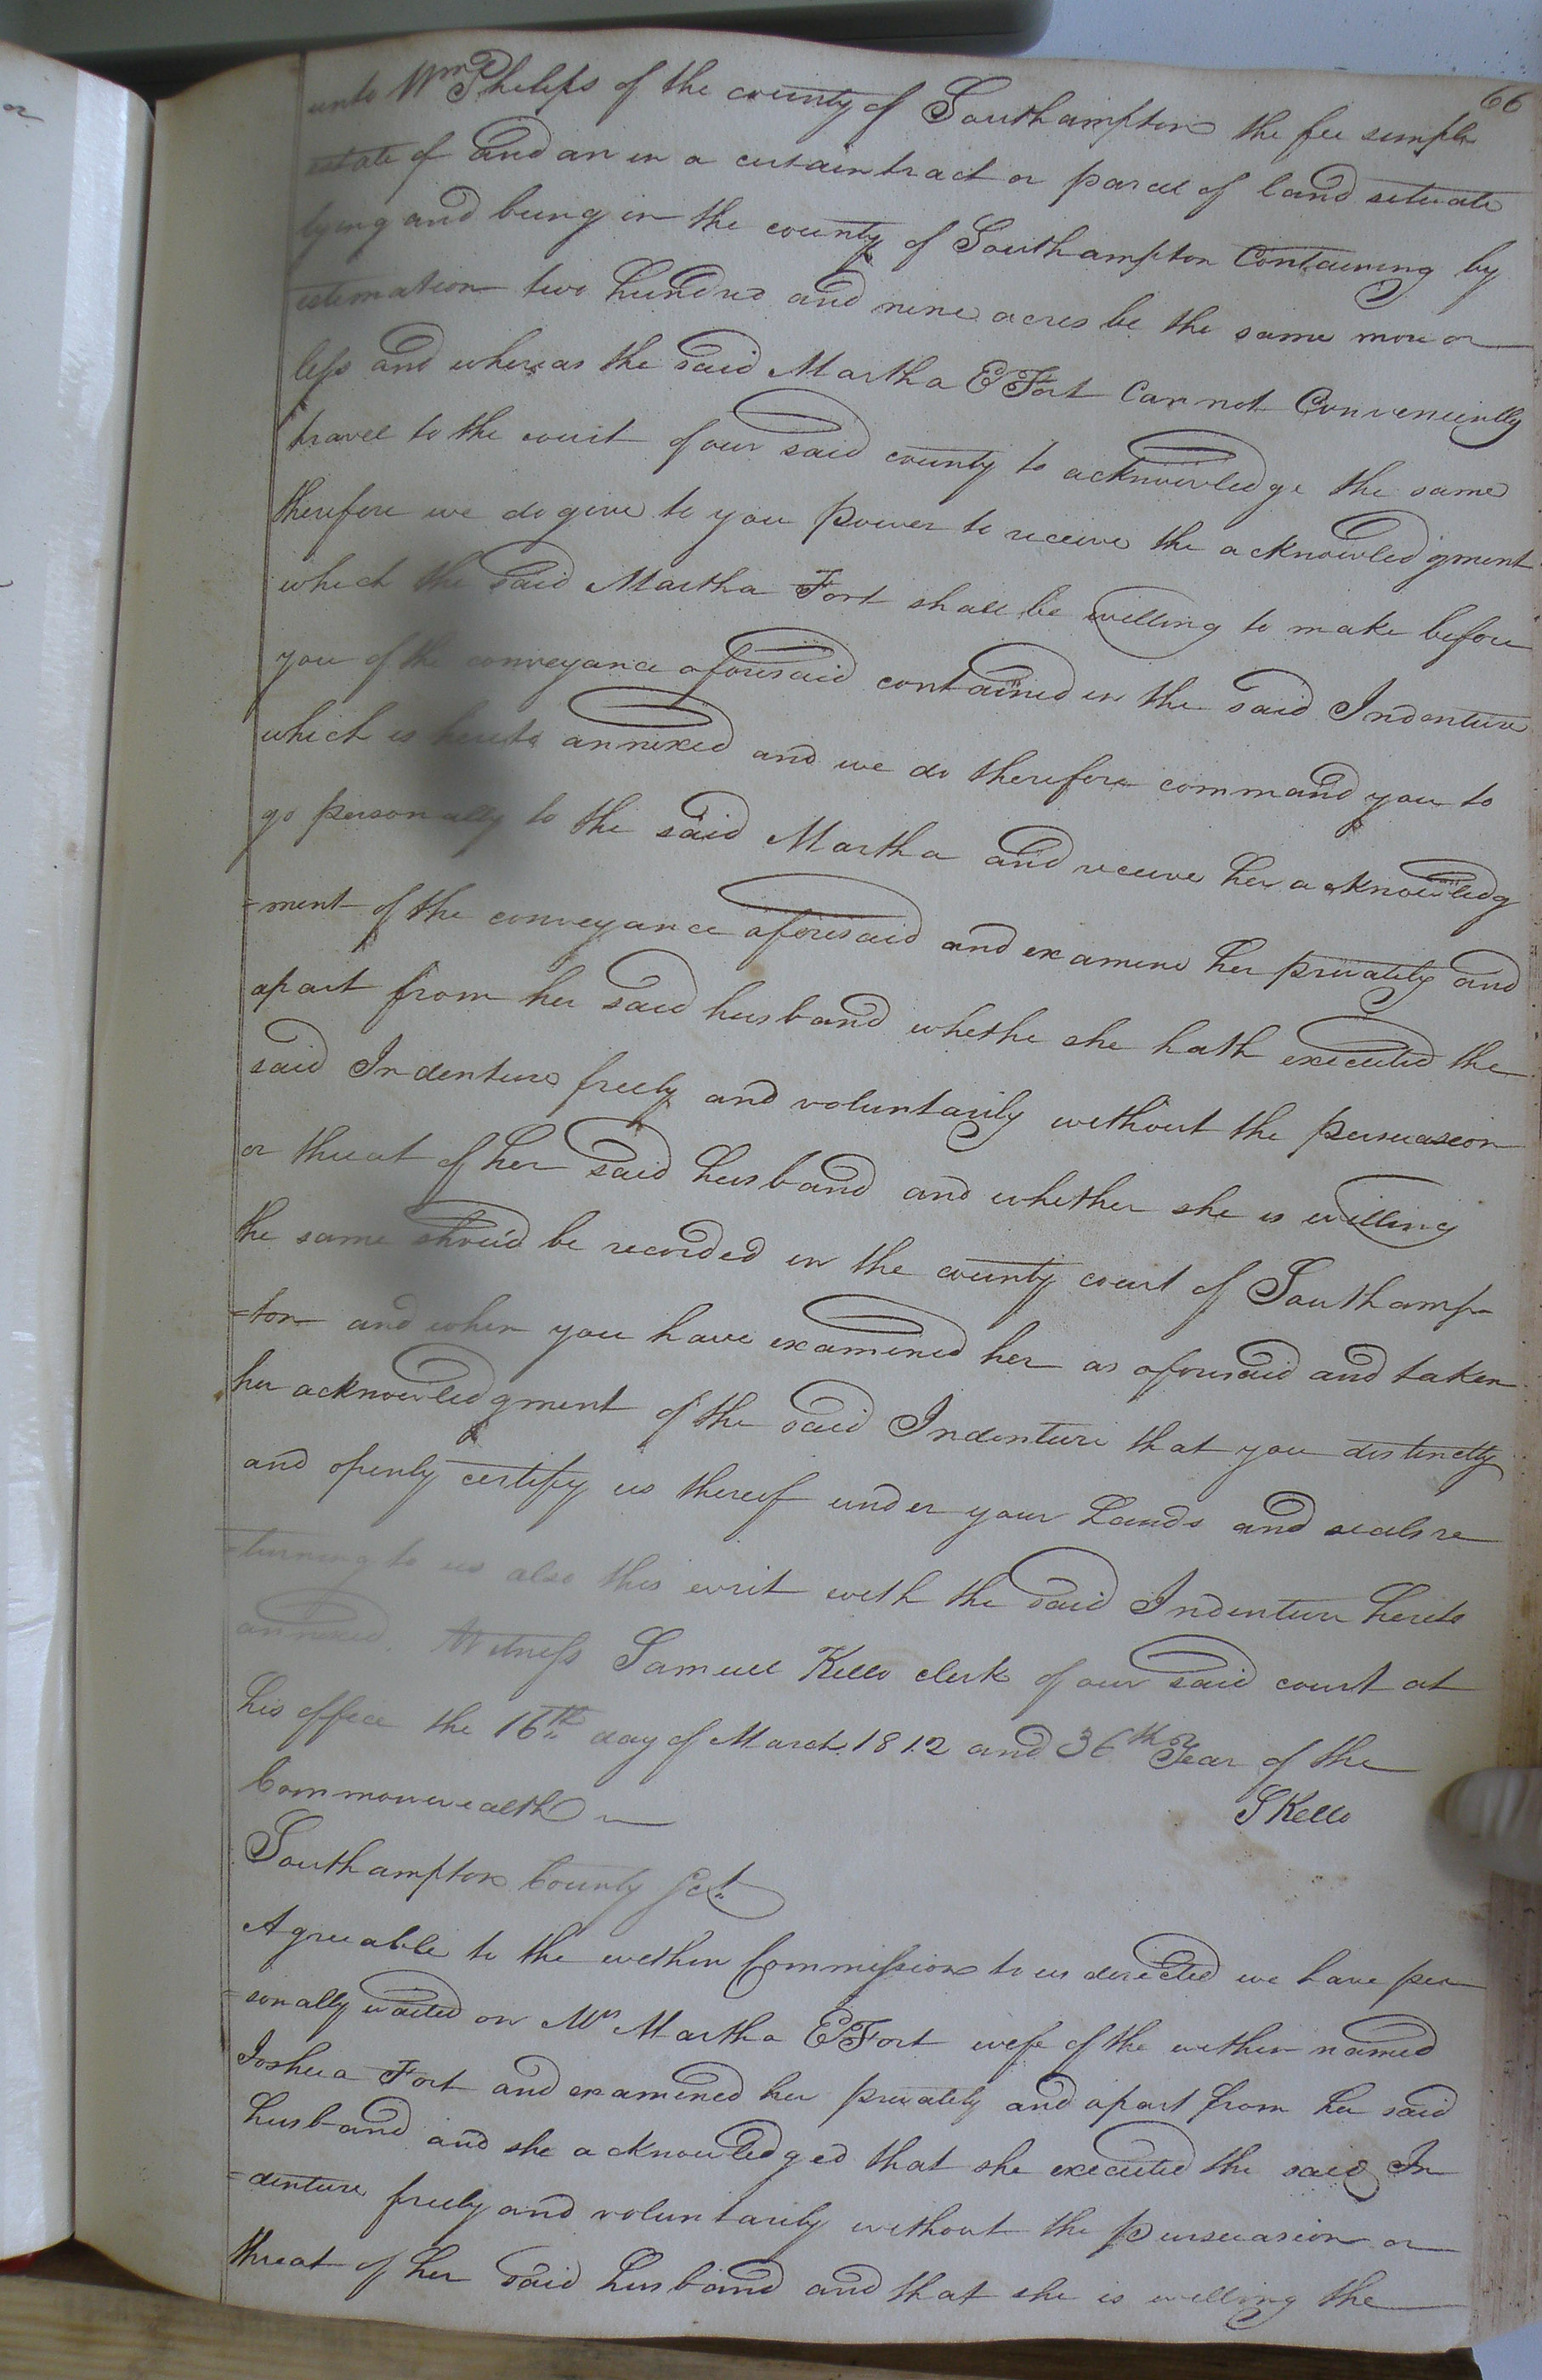 66
unto Wm Phelps of the county of Southampton the fee simple
estate of and an in a certain tract or parcel of land situate
lying and being in the county of Southampton Containing by
estimation two hundred and nine acres be the same more or
less and whereas the said Martha E Fort Cannot Conveniently
travel to the court of our said county to acknowledge the same
therefore we do give to you power to receive the acknowledgment
which the said Martha Fort shall be willing to make before
you of the conveyance aforesaid contained in the said Indenture
which is hereto annexed and we do therefore command you to
go personally to the said Martha and receive her acknowledg
=ment of the conveyance aforesaid and examine her privately and
apart from her said husband whethe she hath executed the
said Indenture freely and voluntarily without the persuasion
or threat of her said husband and whether she is willing
the same should be recorded in the county court of Southamp
=ton and when you have examined her as aforesaid and taken
her acknowledgment of the said Indenture that you distinctly
and openly certify us thereof under your hands and seals re
=turning to us also this writ with the said Indenture hereto
annexed. Witness Samuel Kello clerk of our said court at
his office the 16th day of March 1812 and 36th Year of the
Commonwealth
SKello
Southampton County Sct.
Agreeable to the within Commission to us directed we have per
=sonally waited on Mrs Martha E Fort wife of the within named
Joshua Fort and examined her privately and apart from her said
husband and she acknowledged that she executed the said In
=denture freely and voluntarily without the persuasion or
threat of her said husband and that she is willing the